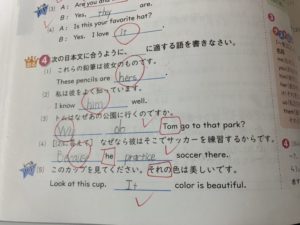 (3) A: Are you and
B: Yes, they are.
(4) A: Is this your favorite hat?
B: Yes. I love it.
4 次の日本文に合うように、 に適する語を書きなさい。
(1) これらの鉛筆は彼女のものです。
These pencils are hers.
(2) 私は彼をよく知っています。
I know him well.
(3) トムはなぜあの公園に行くのですか。
Why Tom go to that park?
(4) なぜなら彼はそこでサッカーを練習するからです。
Because he practice soccer there.
(5) このカップを見てください。それの色は美しいです。
Look at this cup. It color is beautiful.